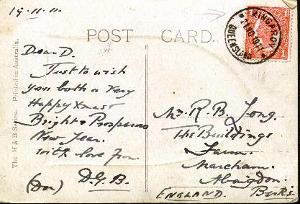 19.11.11.
POST CARD.
Dear D.
Just to wish
you both a very
Happy Xmas
Bright & Prosperous
New Year.
With love from
(Don) D.G.B.
Mr. R. B. Long.
The Buildings
Farm.
Marcham.
Abingdon
Berks.
ENGLAND.
Printed in Australia.